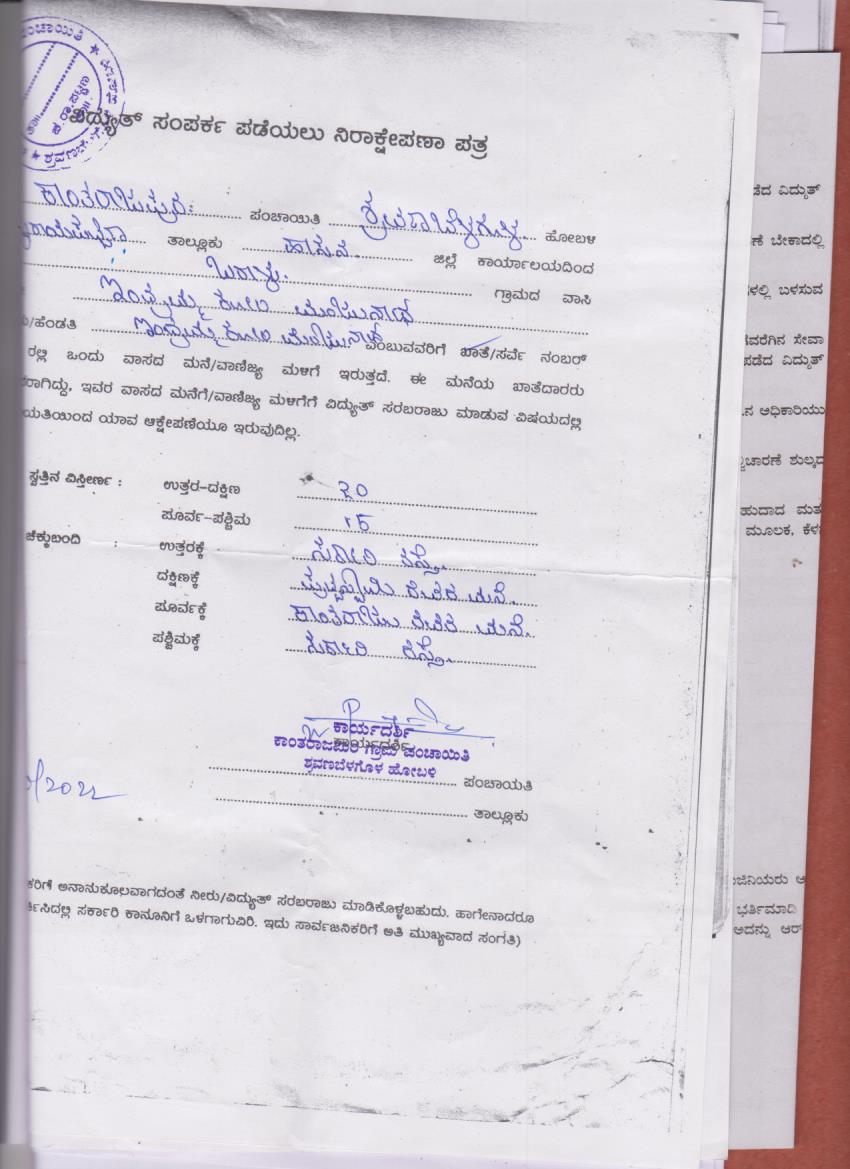 ವಿದ್ಯುತ್ ಸಂಪರ್ಕ ಪಡೆಯಲು ನಿರಾಕ್ಷೇಪಣಾ ಪತ್ರ
ಕಾಂತರಾಜಪುರ ಪಂಚಾಯಿತಿ ಶ್ರವಣಬೆಳಗೊಳ ಹೋಬಳಿ
ತಾಲ್ಲೂಕು ಹಾಸನ ಜಿಲ್ಲೆ ಕಾರ್ಯಾಲಯದಿಂದ
ಗ್ರಾಮದ ವಾಸಿ
ಇಂದ್ರಮ್ಮ ಕೋಂ ಮಂಜುನಾಥ
/ಹೆಂಡತಿ ಇಂದ್ರಮ್ಮ ಕೋಂ ಮಂಜುನಾಥ ಎಂಬುವವರಿಗೆ ಖಾತೆ/ಸರ್ವೆ ನಂಬರ್
ರಲ್ಲಿ ಒಂದು ವಾಸದ ಮನೆ/ವಾಣಿಜ್ಯ ಮಳಿಗೆ ಇರುತ್ತದೆ. ಈ ಮನೆಯ ಖಾತೆದಾರರು
ರಾಗಿದ್ದು, ಇವರ ವಾಸದ ಮನೆಗೆ/ವಾಣಿಜ್ಯ ಮಳಿಗೆಗೆ ವಿದ್ಯುತ್ ಸರಬರಾಜು ಮಾಡುವ ವಿಷಯದಲ್ಲಿ
ಯತಿಯಿಂದ ಯಾವ ಆಕ್ಷೇಪಣೆಯೂ ಇರುವುದಿಲ್ಲ.
ಸ್ವತ್ತಿನ ವಿಸ್ತೀರ್ಣ : ಉತ್ತರ-ದಕ್ಷಿಣ ೩೦
ಪೂರ್ವ-ಪಶ್ಚಿಮ ೧೯
ಚೆಕ್ಕುಬಂದಿ : ಉತ್ತರಕ್ಕೆ ಸರ್ಕಾರಿ ರಸ್ತೆ.
ದಕ್ಷಿಣಕ್ಕೆ ಪುಟ್ಟಸ್ವಾಮಿ ರವರ ಮನೆ.
ಪೂರ್ವಕ್ಕೆ ಕಾಂತರಾಜು ರವರ ಮನೆ.
ಪಶ್ಚಿಮಕ್ಕೆ ಸರ್ಕಾರಿ ರಸ್ತೆ.
ಕಾರ್ಯದರ್ಶಿ
ಕಾರ್ಯದರ್ಶಿ
ಕಾಂತರಾಜಪುರ ಗ್ರಾಮ ಪಂಚಾಯಿತಿ
ಶ್ರವಣಬೆಳಗೊಳ ಹೋಬಳಿ
ಪಂಚಾಯತಿ
/2022
ತಾಲ್ಲೂಕು
ಕರಿಗೆ ಅನಾನುಕೂಲವಾಗದಂತೆ ನೀರು/ವಿದ್ಯುತ್ ಸರಬರಾಜು ಮಾಡಿಕೊಳ್ಳಬಹುದು. ಹಾಗೇನಾದರೂ
ಸಿದಲ್ಲಿ ಸರ್ಕಾರಿ ಕಾನೂನಿಗೆ ಒಳಗಾಗುವಿರಿ. ಇದು ಸಾರ್ವಜನಿಕರಿಗೆ ಅತಿ ಮುಖ್ಯವಾದ ಸಂಗತಿ)
ಡೆದ ವಿದ್ಯುತ್
ಣೆ ಬೇಕಾದಲ್ಲಿ
ಗಳಲ್ಲಿ ಬಳಸುವ
ವರೆಗಿನ ಸೇವಾ
ಪಡೆದ ವಿದ್ಯುತ್
ನ ಅಧಿಕಾರಿಯು
ಚಾರಣೆ ಶುಲ್ಕದ
ಹುದಾದ ಮತ
ಮೂಲಕ, ಕೆಳ
ಜಿನಿಯರು ಅ
ಭರ್ತಿಮಾಡಿ
ಅದನ್ನು ಆರ್